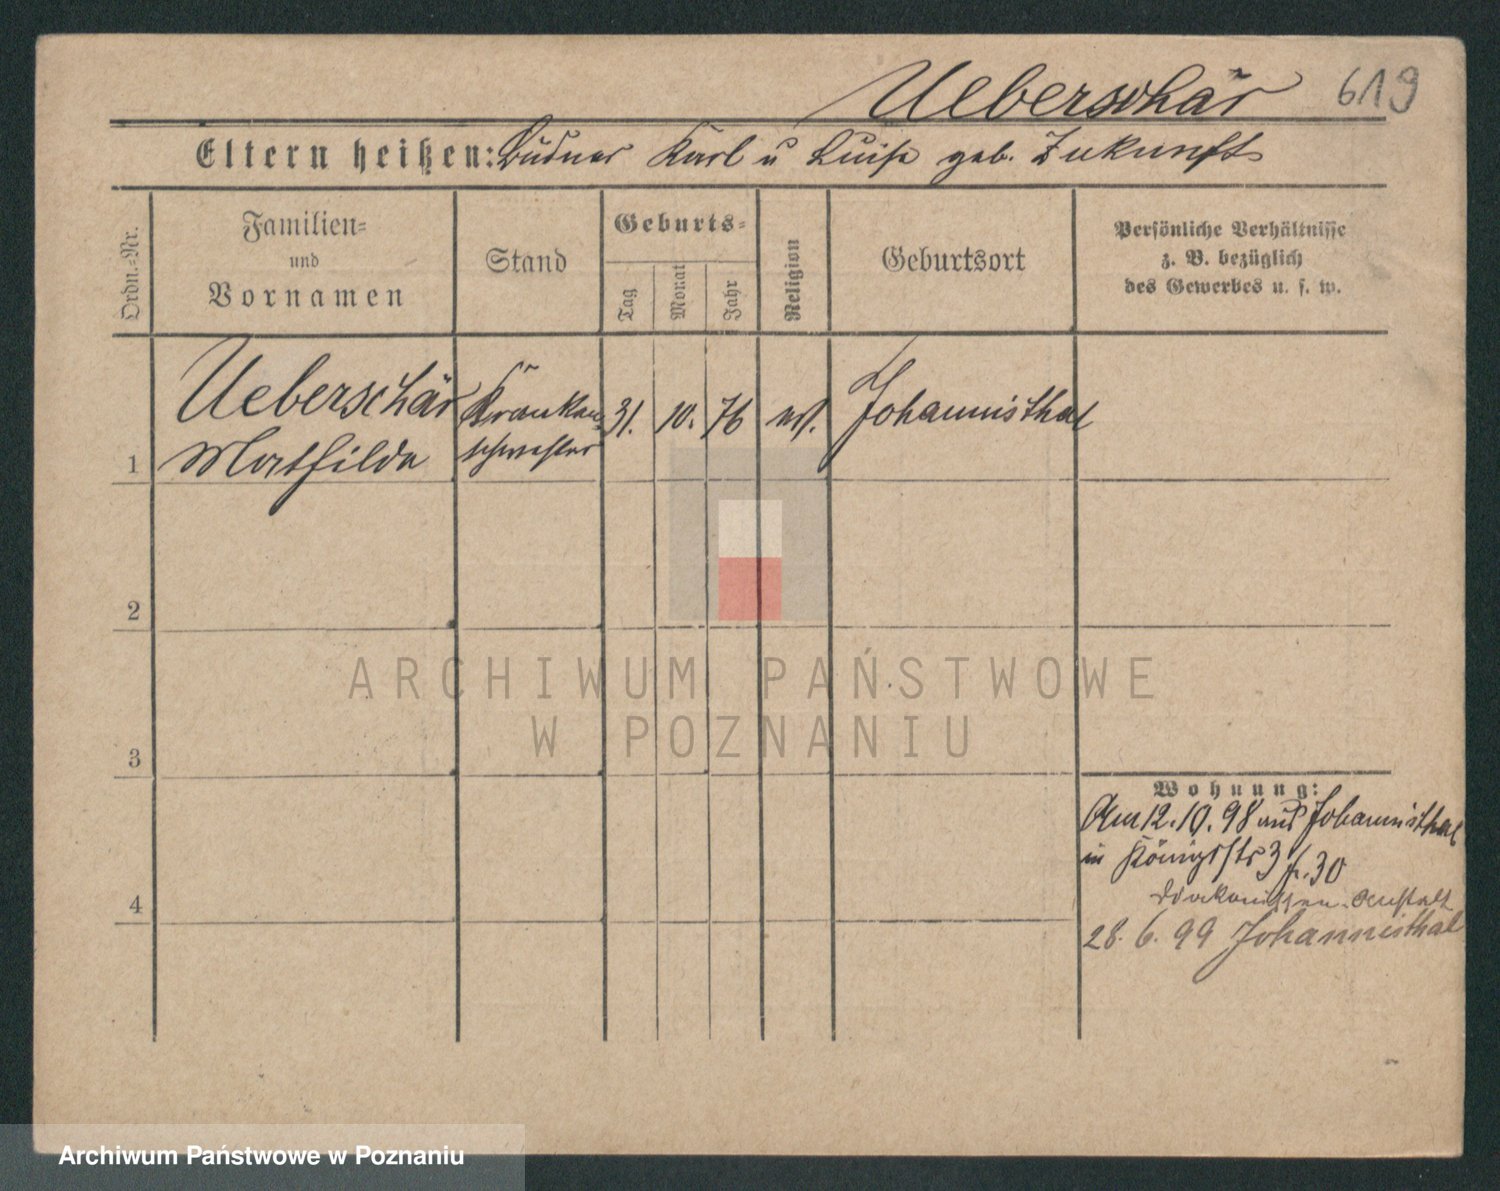 Ueberschär 619
Eltern heißen: Büdner Karl u Luise geb. Zukunft
Ordn.-Nr.
Familien-
und
Vornamen
Stand
Geburts-
Tag
Monat
Jahr
Religion
Geburtsort
Persönliche Verhältnisse
z. B. bezüglich
des Gewerbes u. s. w.
1
Ueberschär
Mathilde
Kranken
schwester
31.
10.
76
ev.
Johannisthal
2
3
4
Wohnung:
Am 12.10.98 aus Johannisthal
in Königsstr 3 30
Diakonissen-Anstalt
28. 6. 99 Johannisthal
ARCHIWUM PAŃSTWOWE
W POZNANIU
Archiwum Państwowe w Poznaniu